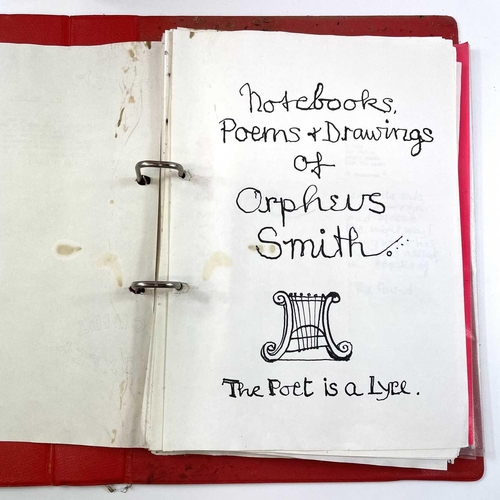 Notebooks,
Poems & Drawings
of
Orpheus
Smith
The Poet is a Lyre.